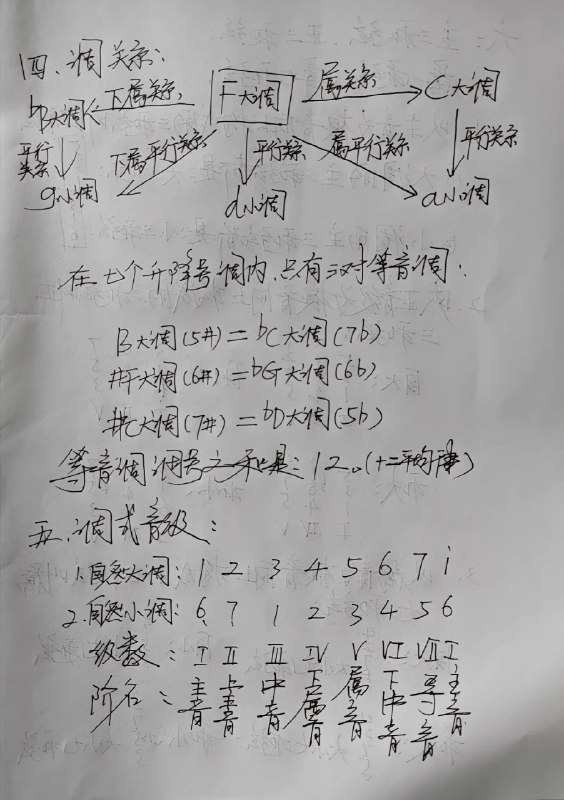 四、调关系：
bB大调 下属关系 F大调 属关系 C大调
平行关系 下属平行关系 平行关系 属平行关系 平行关系
g小调 d小调 a小调
在七个升降号调内，只有三对等音调：
B大调(5#)=bC大调(7b)
#F大调(6#)=bG大调(6b)
#C大调(7#)=bD大调(5b)
等音调调号之和是：12。(十二平均律)
五、调式音级：
1.自然大调：1 2 3 4 5 6 7 i
2.自然小调：6 7 1 2 3 4 5 6
级数：I II III IV V VI VII I
阶名：主音 上主音 中音 下属音 属音 下中音 导音 主音